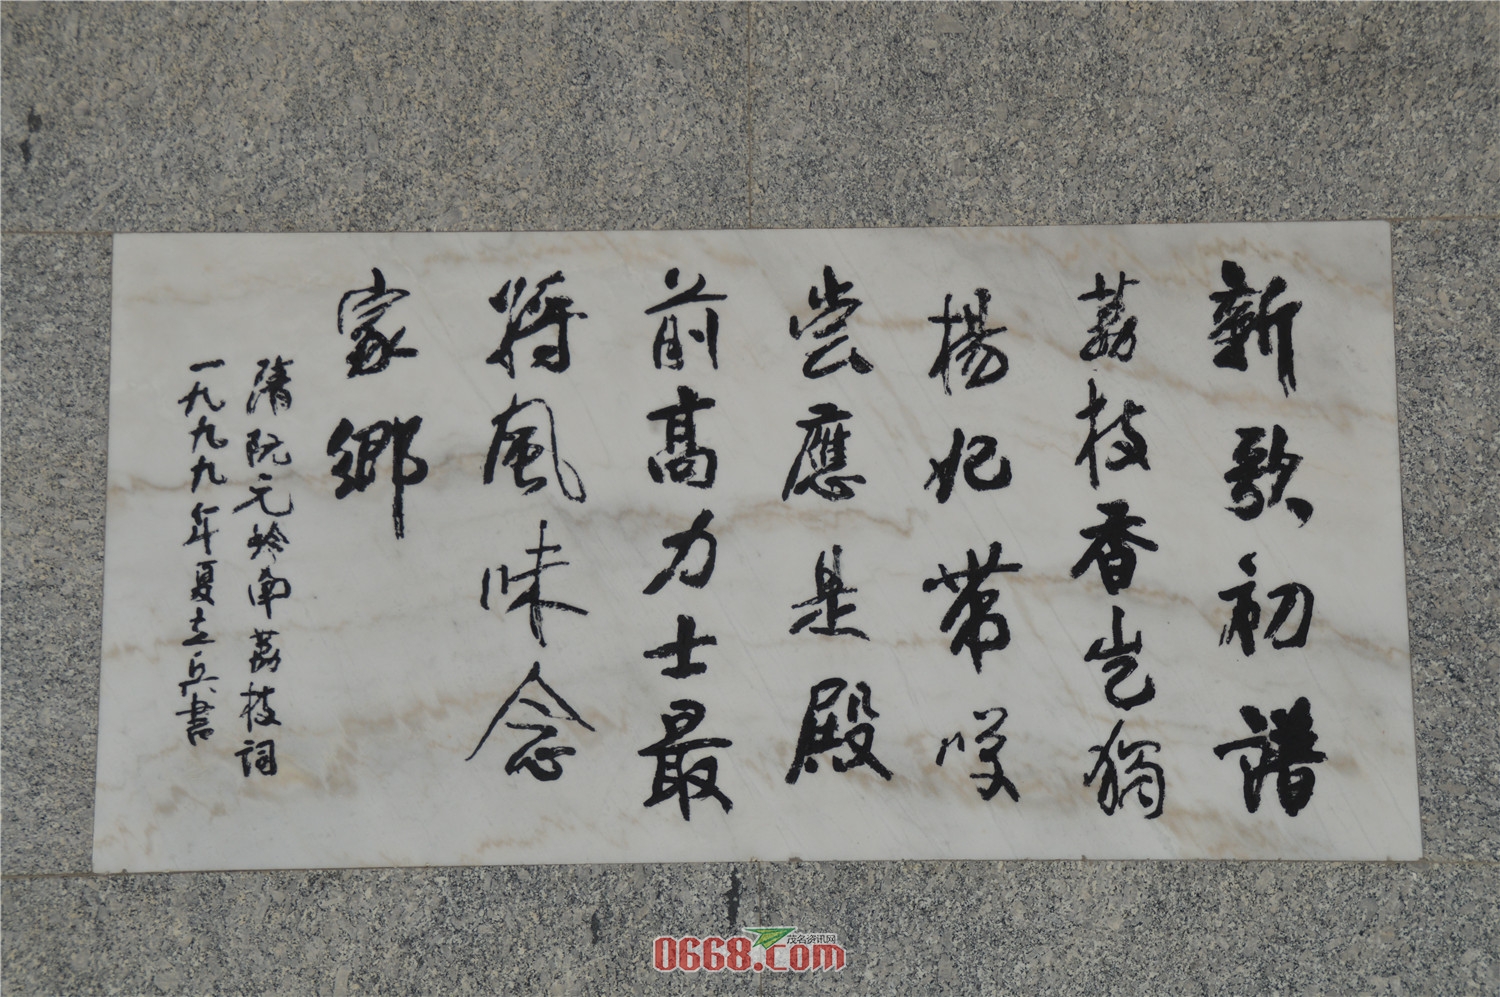 新歌初譜
荔枝香豈獨
楊妃帶笑
嘗應是殿
前高力士最
將風味念
家鄉
隋阮元岭南荔枝詞
一九九九年夏立兵書
茂名资讯网
0668.com